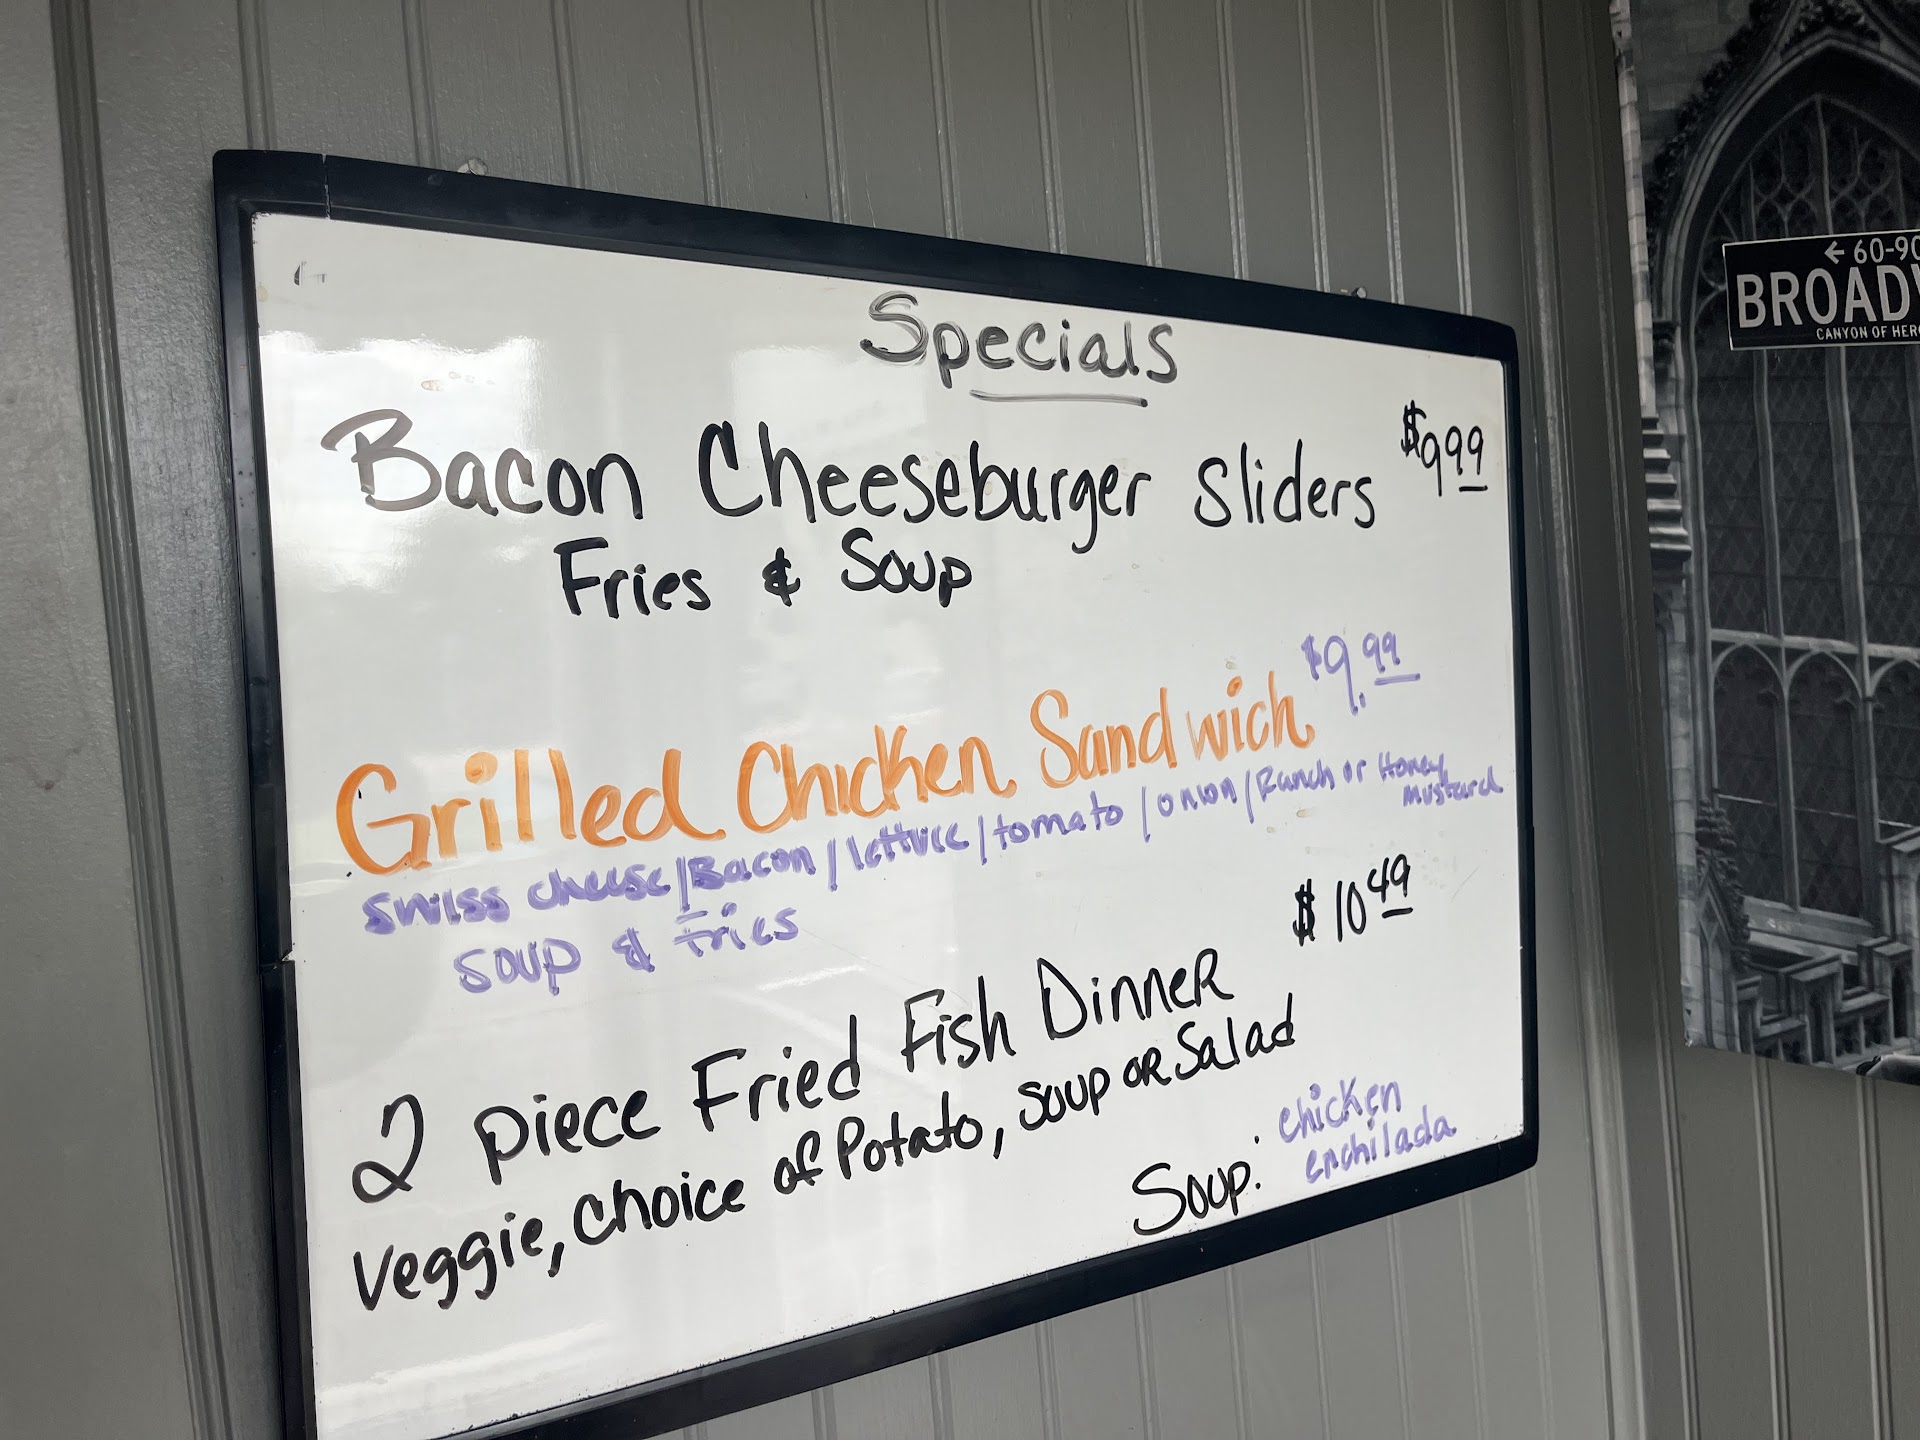 Specials
Bacon Cheeseburger Sliders $9.99
Fries & Soup
Grilled Chicken Sandwich $9.99
Swiss cheese/Bacon/lettuce/tomato/onion/Ranch or Honey Mustard
Soup & Fries
2 piece Fried Fish Dinner $10.49
Veggie, Choice of Potato, Soup or Salad
Soup: chicken
enchilada
← 60-90
BROADW
CANYON OF HERO